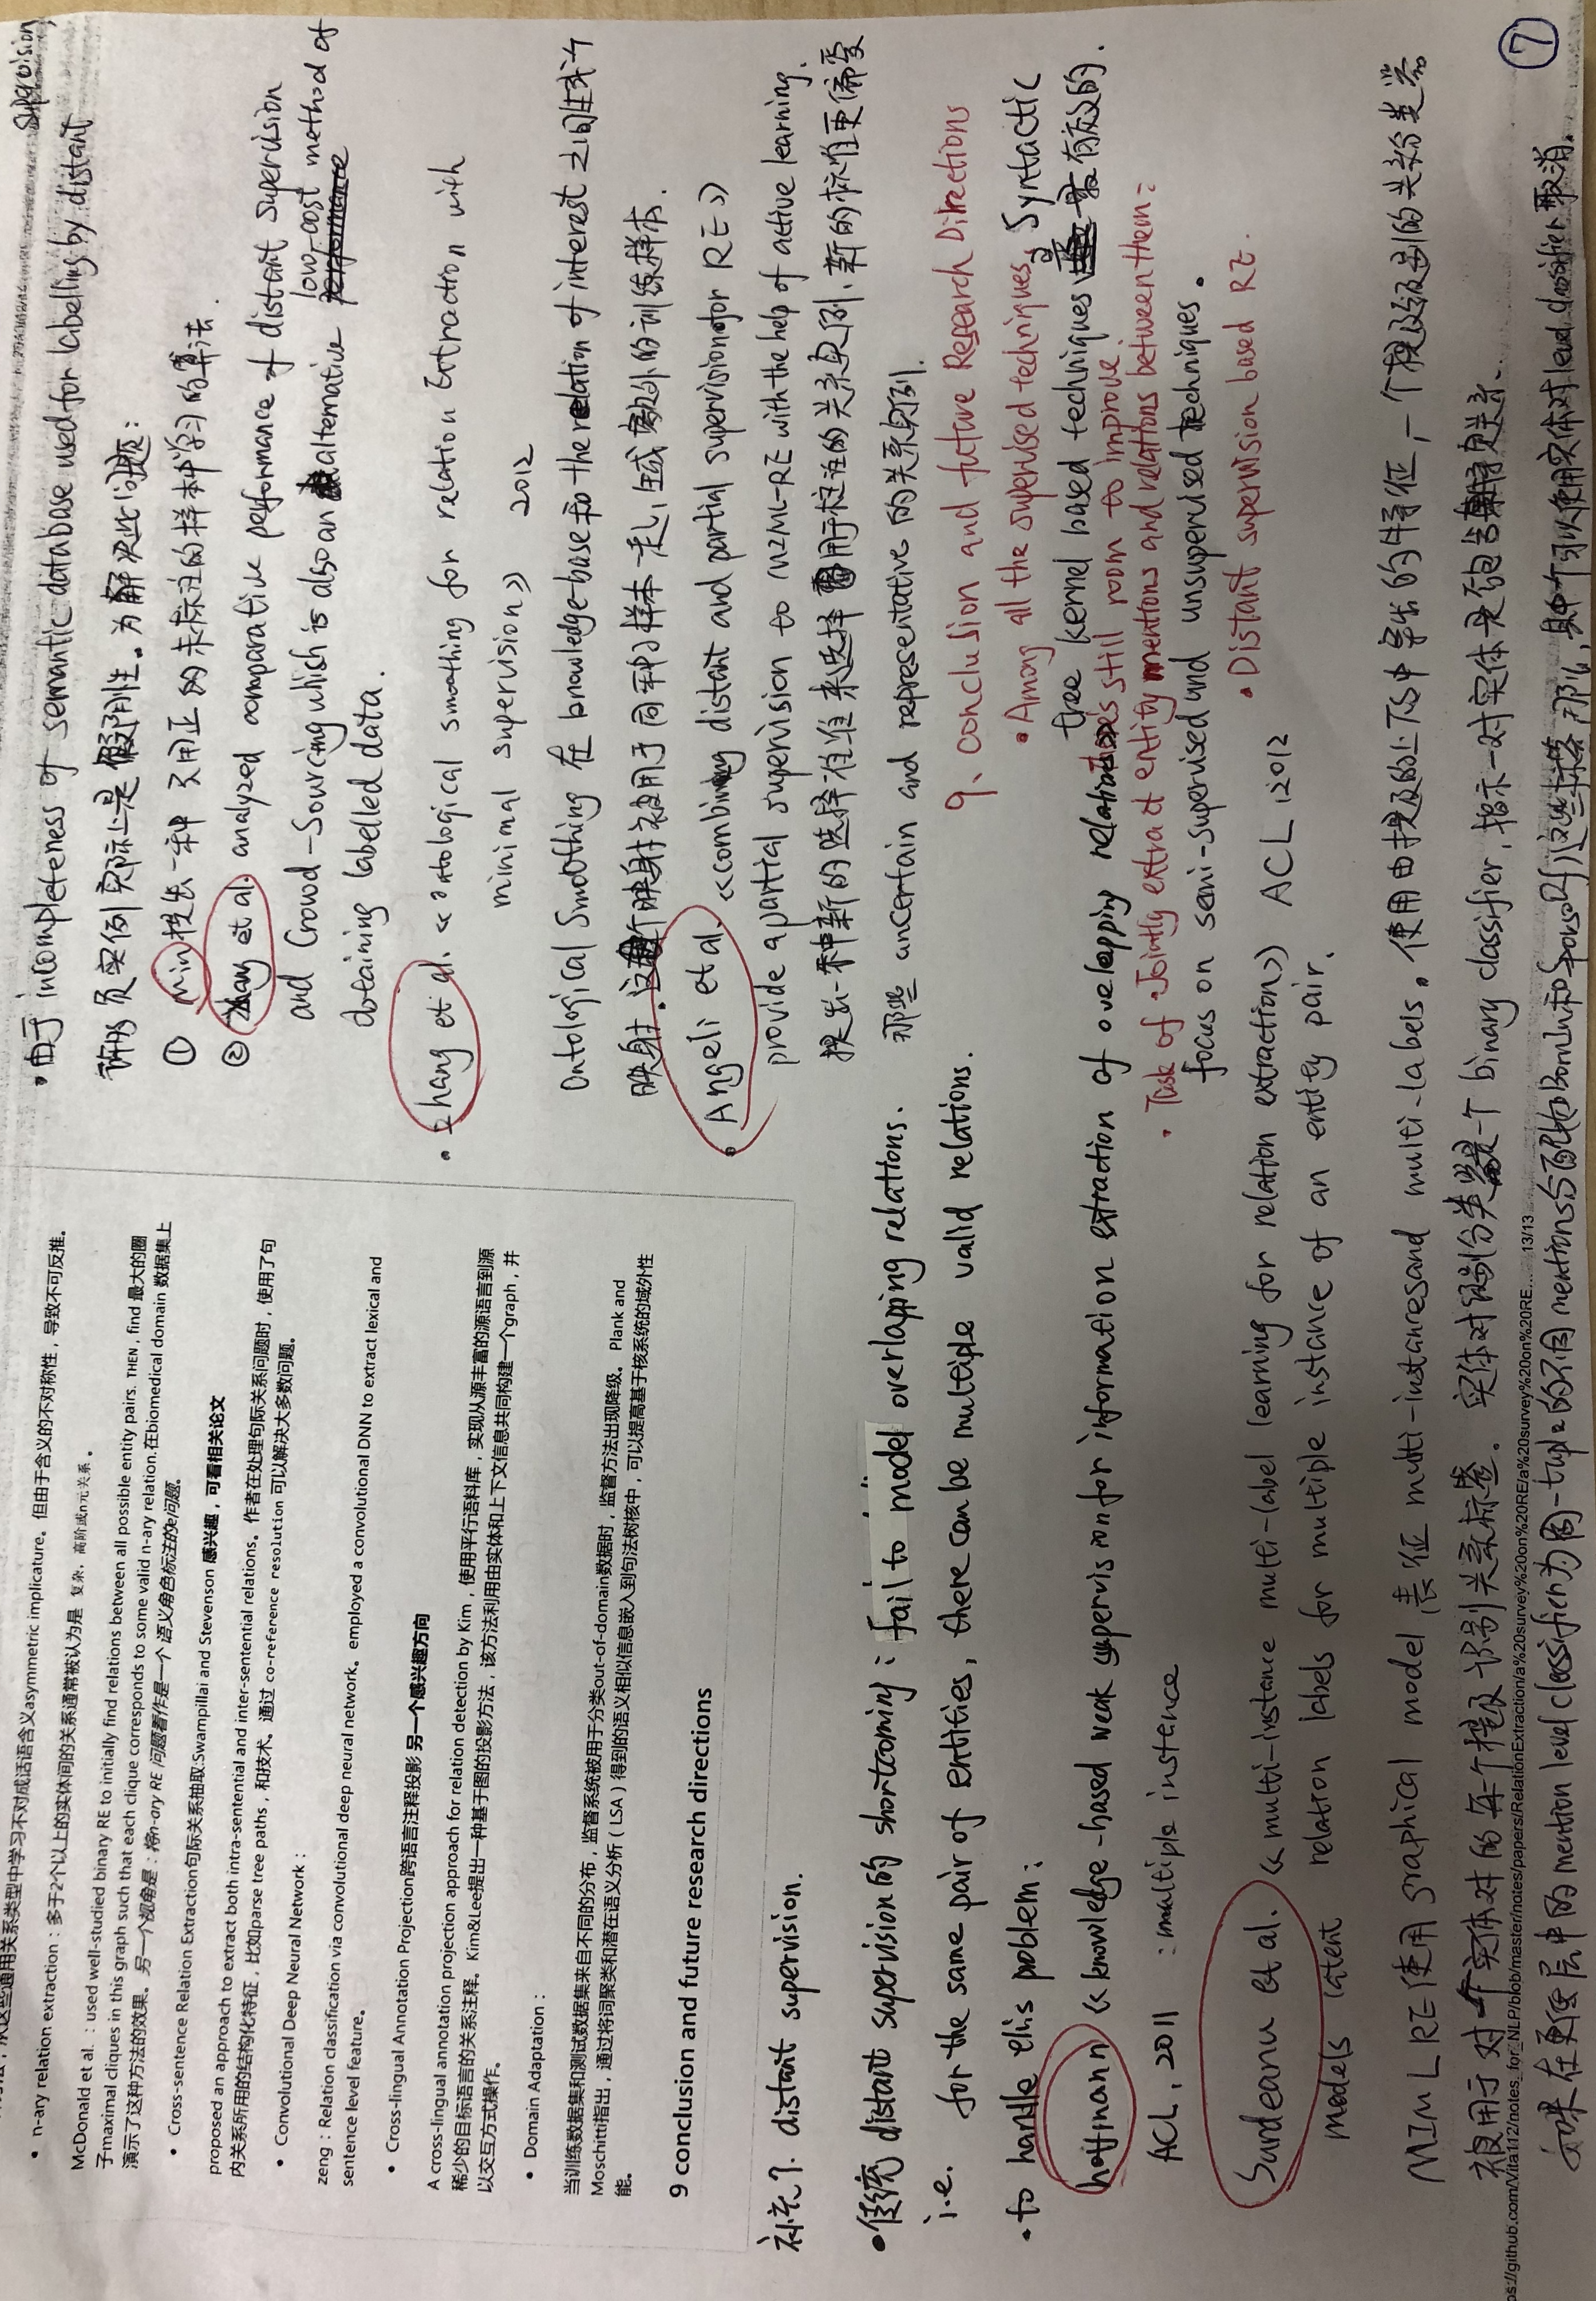 从这些通用关系类型中学习不对成话语含义asymmetric implicature。但由于含义的不对称性，导致不可反推。
• n-ary relation extraction：多于2个以上的实体间的关系通常被认为是 复杂，高阶或n元关系 。
McDonald et al. ：used well-studied binary RE to initially find relations between all possible entity pairs. THEN，find 最大的圈
子maximal cliques in this graph such that each clique corresponds to some valid n-ary relation.在biomedical domain 数据集上
演示了这种方法的效果。另一个视角是：将n-ary RE 问题看作是一个 语义角色标注的e问题。
• Cross-sentence Relation Extraction句际关系抽取:Swampillai and Stevenson 感兴趣，可看相关论文
proposed an approach to extract both intra-sentential and inter-sentential relations。作者在处理句际关系问题时，使用了句
内关系所用的结构化特征，比如parse tree paths，和技术。通过 co-reference resolution 可以解决大多数问题。
• Convolutional Deep Neural Network：
zeng：Relation classification via convolutional deep neural network。employed a convolutional DNN to extract lexical and
sentence level feature。
• Cross-lingual Annotation Projection跨语言注释投影 另一个感兴趣方向
A cross-lingual annotation projection approach for relation detection by Kim，使用平行语料库，实现从源丰富的源语言到源
稀少的目标语言的关系注释。Kim&Lee提出一种基于图的投影方法，该方法利用由实体和上下文信息共同构建一个graph，并
以交互方式操作。
• Domain Adaptation：
当训练数据集和测试数据集来自不同的分布，监督系统被用于分类out-of-domain数据时，监督方法出现降级。 Plank and
Moschitti指出，通过将词聚类和潜在语义分析（LSA）得到的语义相似信息嵌入到句法树核中，可以提高基于核系统的域外性
能。
9 conclusion and future research directions
补充7. distant supervision.
•传统 distant supervision的 shortcoming：fail to model overlapping relations.
i.e. for the same pair of entities, there can be multiple valid relations.
•to handle this problem：
hoffmann 《knowledge-based weak supervision for information extraction of overlapping relations》
ACL, 2011 :multiple instence
Surdeanu et al. 《multi-instance multi-label learning for relation extraction》 ACL,2012
models latent relation labels for multiple instance of an entity pair.
MIML RE使用 graphical model 表征 multi-instances and multi-labels。使用由提及的上下文中导出的特征，一个提及级别的关系分类器
被用于对一个实体对的每个提及识别关系标签。实体对级别分类器是一个 binary classifier, 指示一对实体是否包含某特定关系.
ps://github.com/Vita112/notes_for_NLP/blob/master/notes/papers/RelationExtraction/a%20survey%20on%20RE/a%20survey%20on%20RE... 13/13
如果在更低层中的 mention level classifier 为同一tuple的不同 mentions分配(如BornIn和SpouseOf)这些标签,那么,其中一个可以使用实体对level classifier取消.
•由于 incompleteness of semantic database used for labelling by distant supervision,
许多负实例实际上是假阴性。为解决此问题：
① min提出一种只用正的未标注的样本中学习的算法.
② zhang et al. analyzed comparative performance of distant supervision
and Crowd-Sourcing which is also an alternative low-cost method of
obtaining labelled data.
• zhang et al. 《ontological smoothing for relation Extraction with
minimal supervision》 2012
Ontological Smoothing 在 knowledge-base和 the relation of interest 之间生成一个
映射. 这个映射被用于同种子样本一起,生成额外的训练样本.
• Angeli et al. 《combining distant and partial supervision for RE》
provide a partial supervision to MIML-RE with the help of active learning.
提出一种新的选择标准来选择用于标注的关系实例, 新的标准更偏爱
那些 uncertain and representative 的关系实例.
9、conclusion and future Research Directions
•Among all the supervised techniques, Syntactic
tree kernel based techniques 是最有效的.
There's still room to improve.
• Task of Jointly extract entity mentions and relations between them:
focus on semi-supervised and unsupervised techniques。
• Distant supervision based RE.
⑦